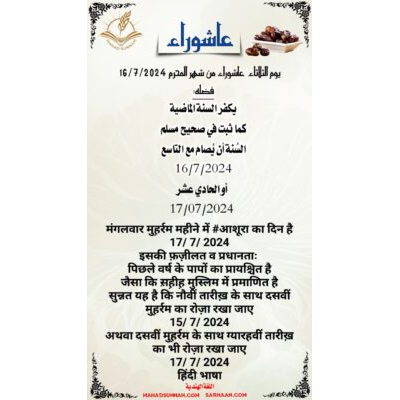 عاشوراء
يوم الثلاثاء عاشوراء من شهر المحرم 16/7/2024
فضله:
يكفر السنة الماضية
كما ثبت في صحيح مسلم
السُنة أن يُصام مع التاسع
16/7/2024
أو الحادي عشر
17/07/2024
मंगलवार मुहर्रम महीने में #आशूरा का दिन है
17/ 7/ 2024
इसकी फ़ज़ीलत व प्रधानताः
पिछले वर्ष के पापों का प्रायश्चित है
जैसा कि सह़ीह़ मुस्लिम में प्रमाणित है
सुन्नत यह है कि नौवीं तारीख़ के साथ दसवीं
मुहर्रम का रोज़ा रखा जाए
15/ 7/ 2024
अथवा दसवीं मुहर्रम के साथ ग्यारहवीं तारीख़
का भी रोज़ा रखा जाए
17/ 7/ 2024
हिंदी भाषा
اللغة الهندية
MAHADSUNNAH.COM SARHAAN.COM